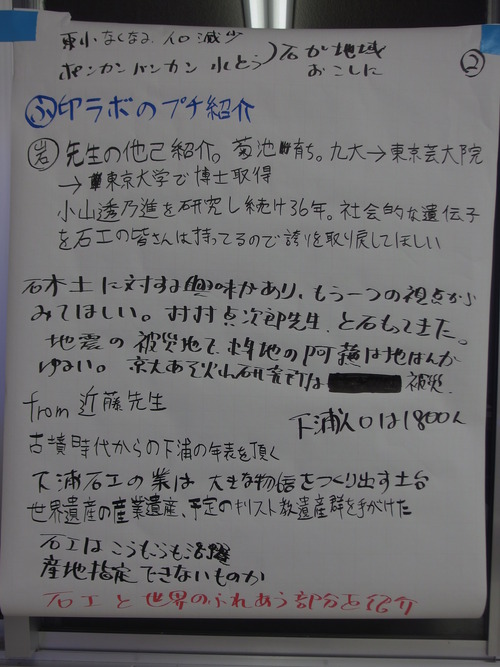 東小なくなる 人口減少
ポンカン バンカン 水とう 石が地域おこしに
②
ふ印ラボのプチ紹介
岩 先生の他己紹介。菊池育ち。九大→東京芸大院
→東京大学で博士取得
小山透乃進を研究し続け36年。社会的な遺伝子
を石工の皆さんは持ってるので誇りを取り戻してほしい
石木土に対する興味があり、もう一つの視点から
みてほしい。村点次郎先生と石もってきた。
地震の被災地で の阿蘇は地ばんが
ゆるい。京大あそ火山研究所は 被災
from 近藤先生
下浦人口は1800人
古墳時代からの下浦の年表を頂く
下浦石工の業は 大きな物語をつくり出す土台
世界遺産の産業遺産、予定のキリスト教遺産群を手がけた
石工はこうもうも活躍
産地指定できないものか
石工と世界のふれあう部分を紹介